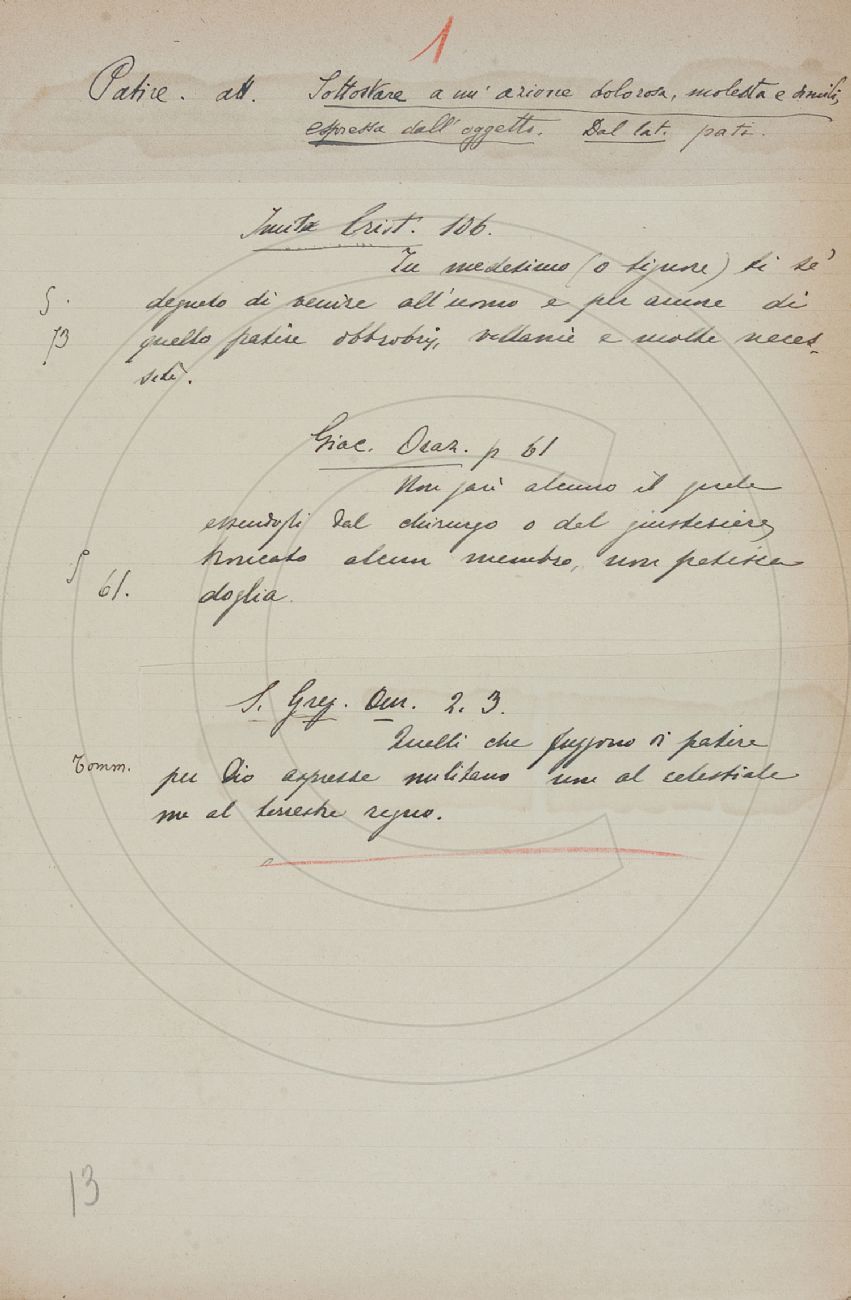 1
Patire. att. Sottostare a un' azione dolorosa, molesta e simili,
espressa dall' oggetto. Dal lat. pati.
Imita Crist. 106.
Tu medesimo (o signore) ti se'
§.
degnato di venire all'uomo e per amore di
73
quello patire obbrobrj, villanie e molte neces-
sità.
Giac. Oraz. p 61
Non sarà alcuno il quale
essendogli dal chirurgo o del giustiziere
troncato alcun membro, non patisca
§ 61.
doglia.
S. Greg. Om. 2. 3.
Quelli che fuggono di patire
Tomm.
per Dio apresse militano non al celestiale
ma al terrestre regno.
13